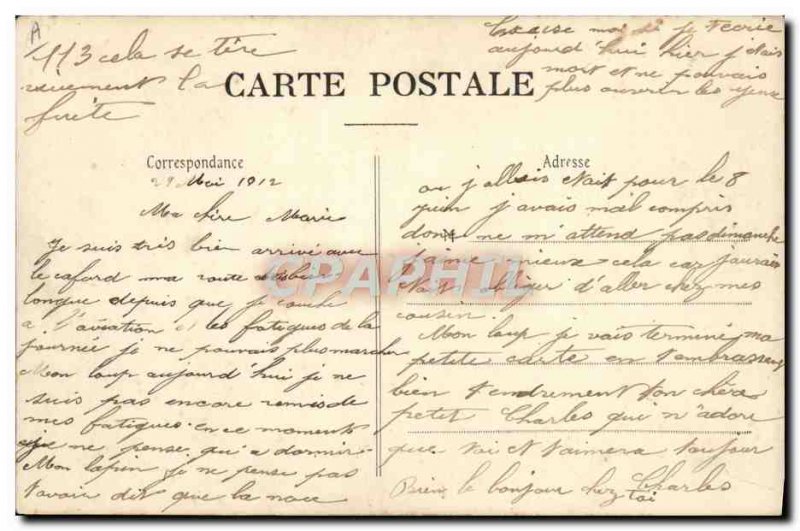 A
113 cela se tire
vivement la
fuite
Excuse moi si je t'ecrie
aujourd hui hier j'etais
mort et ne pouvais
plus ouvrir les yeux
CARTE POSTALE
Correspondance
Adresse
29 Mai 1912
Ma chere Marie
Je suis très bien arrivé avec
le cafard ma route
longue depuis que je couche
a l'aviation et les fatigues de la
journée je ne pouvais plus marcher
Mon loup aujourd'hui je ne
suis pas encore remis de
mes fatigues en ce moments
je ne pense qu'a dormir
Mon lapin je ne pense pas
t'avoir dit que la noce
ou j'allais etait pour le 8
juin j'avais mal compris
donc ne m'attend pas dimanche
j'aime mieux cela car j'aurais
etais obliger d'aller chez mes
cousin.
Mon loup je vais terminé ma
petite carte en t'embrassens
bien tendrement ton chéri
petit Charles qui n'adore
que toi et t'aimera toujour
Charles
Bien le bonjour chez toi
CPAPHIL